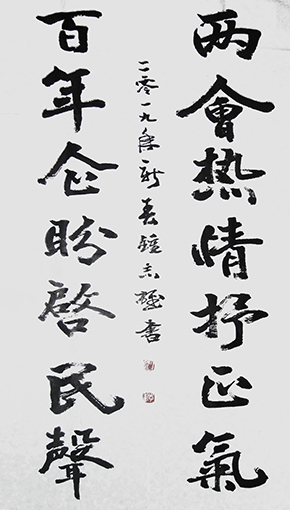 两會热情抒正氣
百年企盼啓民聲
二零一九年新春鍾志强書